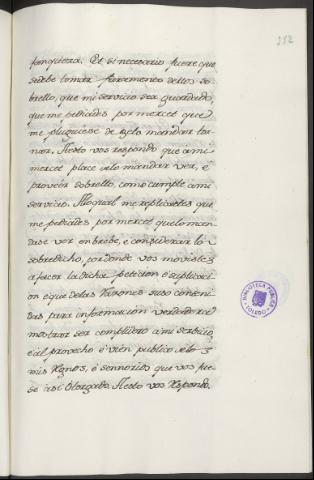 252
fanquera. Et si necesario fuere que
se debe tomar Juramento dellos so-
brello, que mi servicio sea guardado,
que me pediades por mercet que
me pluguiese de gelo mandar tor-
nar. A esto vos respondo que a mi
mercet place velo mandar ver, é
proveer sobrello, como cumple a mi
servicio. Al qual me replicastes que
me pediades por mercet que lo man-
dase ver en brebe, é considerar lo
sobredicho, por donde vos movistes
a facer la dicha peticion é replicaci-
on é que de las razones suso conteni-
das para informacion verdadera é
mostrar ser complidero a mi serbicio,
é al provecho é vien publico de los
mis Regnos, é sennorios que vos fue-
se asi Otorgado. A esto vos Respondo.
BIBLIOTECA PUBLICA
TOLEDO